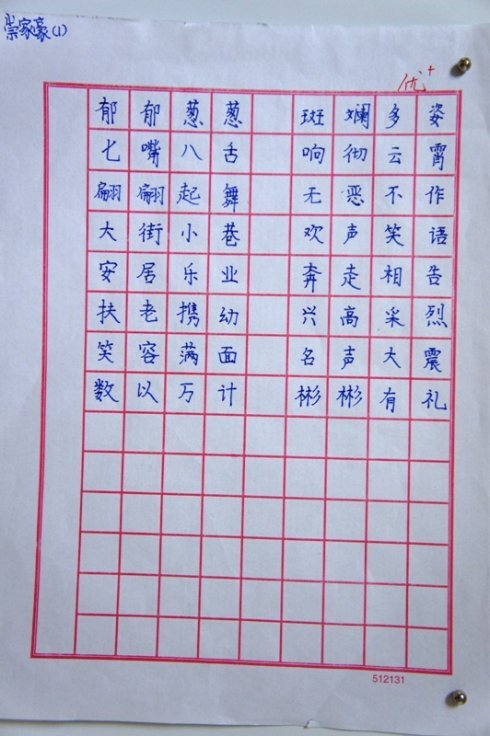 崇家豪(1)
优+
郁郁葱葱 斑斓多姿
七嘴八舌 响彻云霄
翩翩起舞 无恶不作
大街小巷 欢声笑语
安居乐业 奔走相告
扶老携幼 兴高采烈
笑容满面 名声大震
数以万计 彬彬有礼
512131